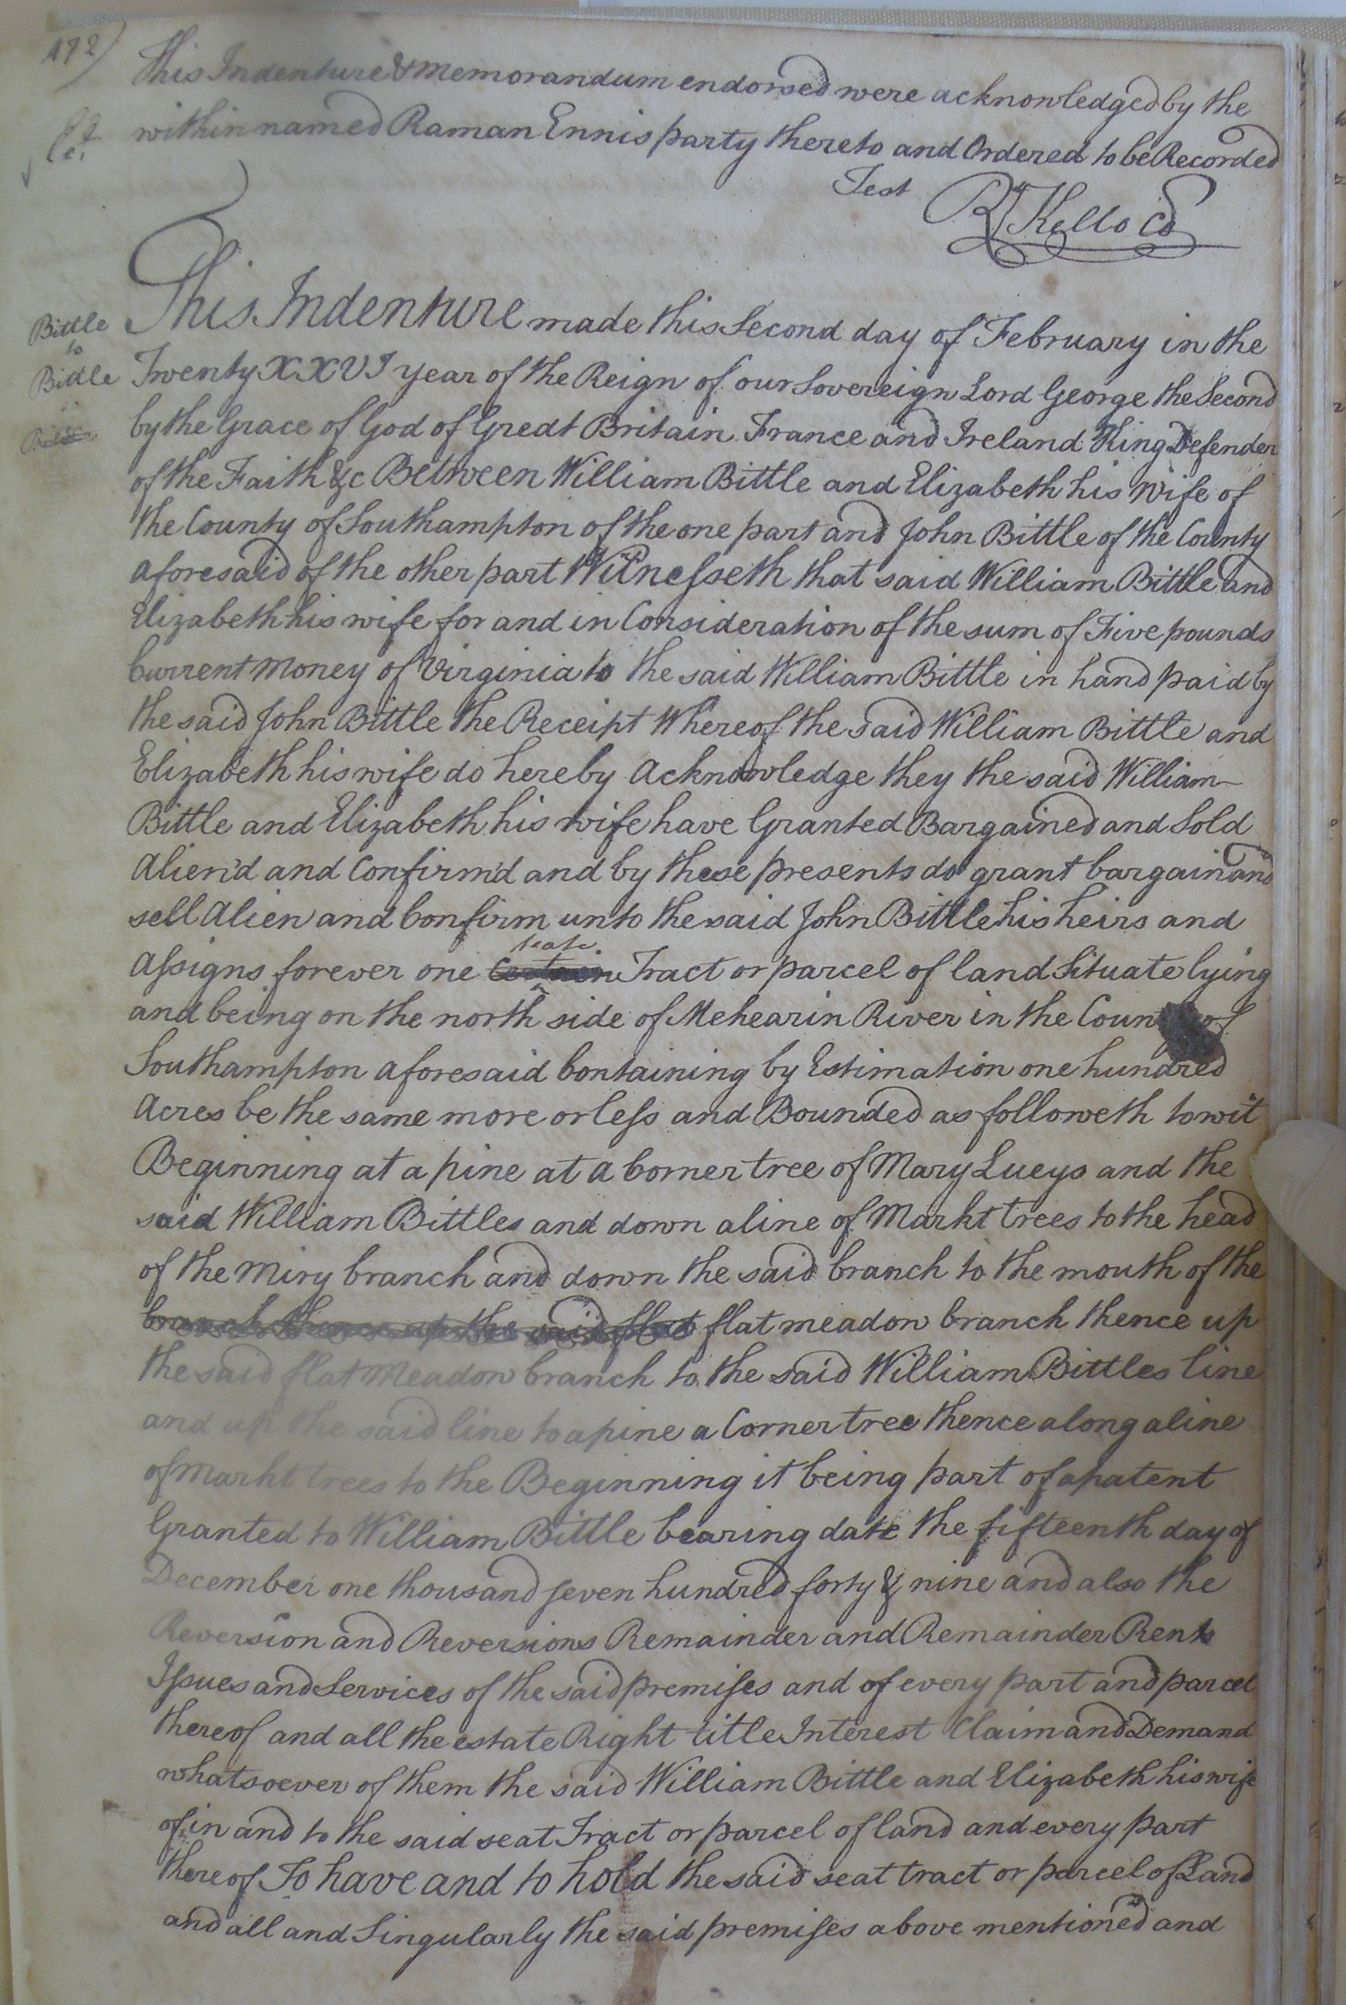 472)
This Indenture & memorandum endorsed were acknowledged by the
within named Raman Ennis party thereto and Ordered to be Recorded
Test Rd Kello Co
Bittle
to
Bittle
This Indenture made this Second day of February in the
Twenty XXVI year of the Reign of our Sovereign Lord George the Second
by the Grace of God of Great Britain France and Ireland King Defender
of the Faith &c Between William Bittle and Elizabeth his Wife of
the County of Southampton of the one part and John Bittle of the County
aforesaid of the other part Witnesseth that said William Bittle and
Elizabeth his wife for and in Consideration of the sum of Five pounds
Current Money of Virginia to the said William Bittle in hand paid by
the said John Bittle the Receipt Whereof the said William Bittle and
Elizabeth his wife do hereby Acknowledge they the said William
Bittle and Elizabeth his wife have Granted Bargained and Sold
Alien'd and Confirm'd and by these presents do grant bargain and
sell Alien and Confirm unto the said John Bittle his heirs and
seat
Assigns forever one Certain Tract or parcel of land Situate lying
and being on the north side of Mehearin River in the County of
Southampton aforesaid Containing by Estimation one hundred
Acres be the same more or less and Bounded as followeth to wit
Beginning at a pine at a Corner tree of Mary Lueys and the
said William Bittles and down a line of Markt trees to the head
of the Miry branch and down the said branch to the mouth of the
branch thence up the said flat flat meadow branch thence up
the said flat Meadow branch to the said William Bittles line
and up the said line to a pine a Corner tree thence along a line
of Markt trees to the Beginning it being part of a patent
Granted to William Bittle bearing date the fifteenth day of
December one thousand seven hundred forty & nine and also the
Reversion and Reversions Remainder and Remainder Rents
Issues and Services of the said premises and of every part and parcel
thereof and all the estate Right title Interest Claim and Demand
whatsoever of them the said William Bittle and Elizabeth his wife
of in and to the said seat Tract or parcel of land and every part
thereof To have and to hold the said seat tract or parcel of Land
and all and Singularly the said premises above mentioned and